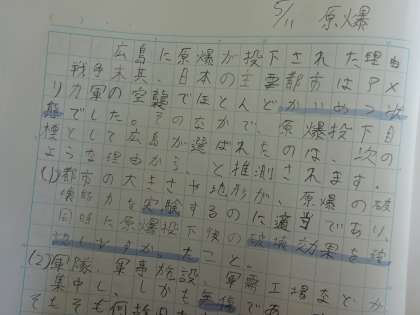 5/11 原爆
広島に原爆が投下された理由
戦争末期、日本の主要都市はアメ
リカ軍の空襲でほとんどかいめつ状
態でした。そのなかで、原爆投下目
標として広島が選ばれたのは、次の
ような理由から、と推測されます。
(1)都市の大きさや地形が、原爆の破
壊能力を実験するのに適当であり、
同時に原爆投下後の破壊効果を確
認しやすかったこと。
(2)軍隊、軍事施設、軍需工場などが
集中し、しかも無傷であ
そもそも何故